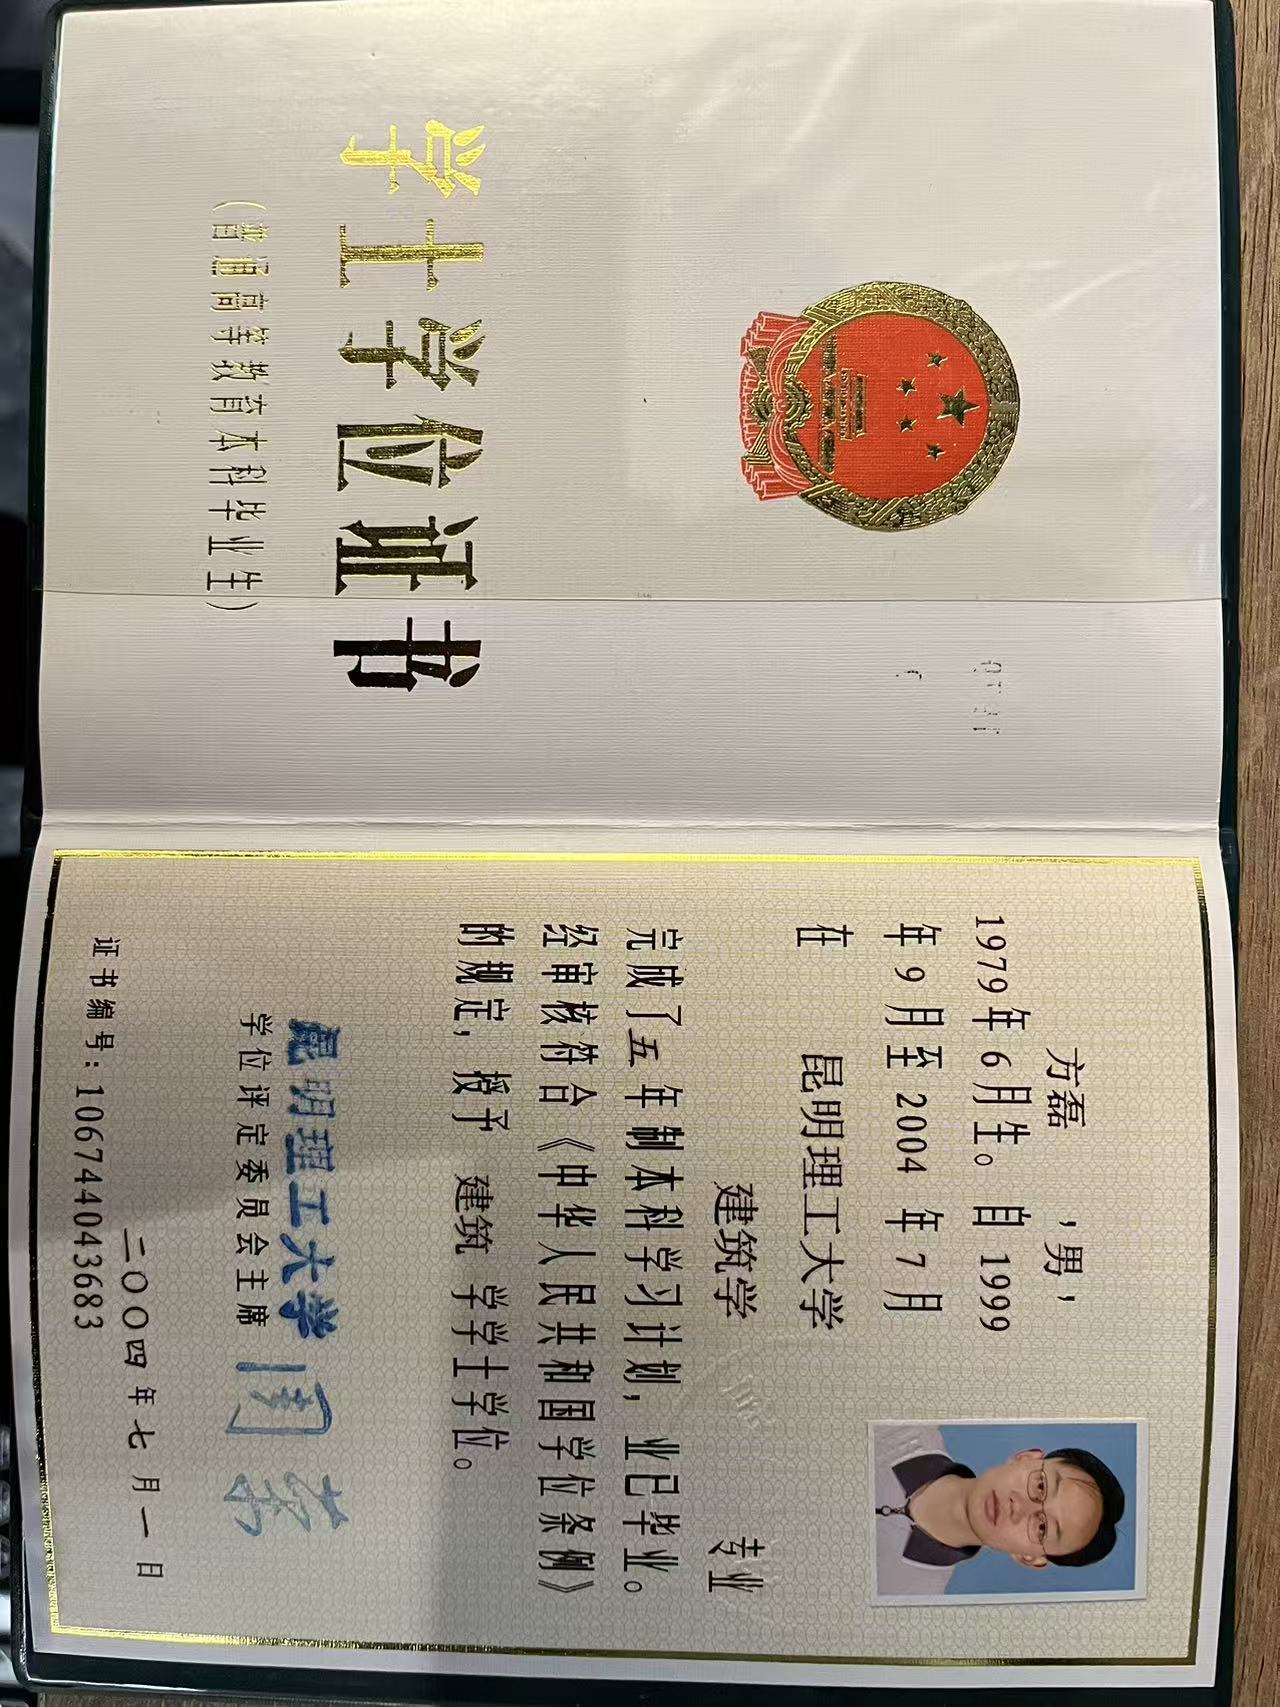 学士学位证书
(普通高等教育本科毕业生)
方磊 ,男,
1979年6月生。自1999
年9月至2004年7月
在 昆明理工大学
建筑学 专业
完成了五年制本科学习计划,业已毕业。
经审核符合《中华人民共和国学位条例》
的规定,授予 建筑 学学士学位。
昆明理工大学
学位评定委员会主席 周荣
二〇〇四年七月一日
证书编号:106744043683